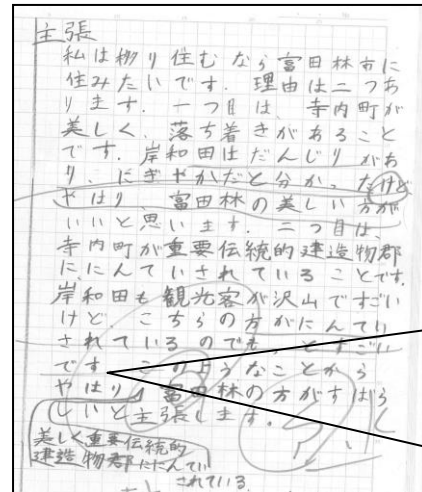 主張
私は移り住むなら富田林市に
住みたいです。理由は二つあ
ります。一つ目は、寺内町が
美しく、落ち着きがあること
です。岸和田はだんじりがあ
り、にぎやかだと分かったけど
やはり、富田林の美しい方が
いいと思います。二つ目は、
寺内町が重要伝統的建造物郡
ににんていされていることです。
岸和田も観光客が沢山ですごい
けど、こちらの方がにんてい
されているのでも、とすごい
です。このようなことから
やはり、富田林の方がすばら
しいと主張します。
美しく重要伝統的
建造物郡ににんてい
されている